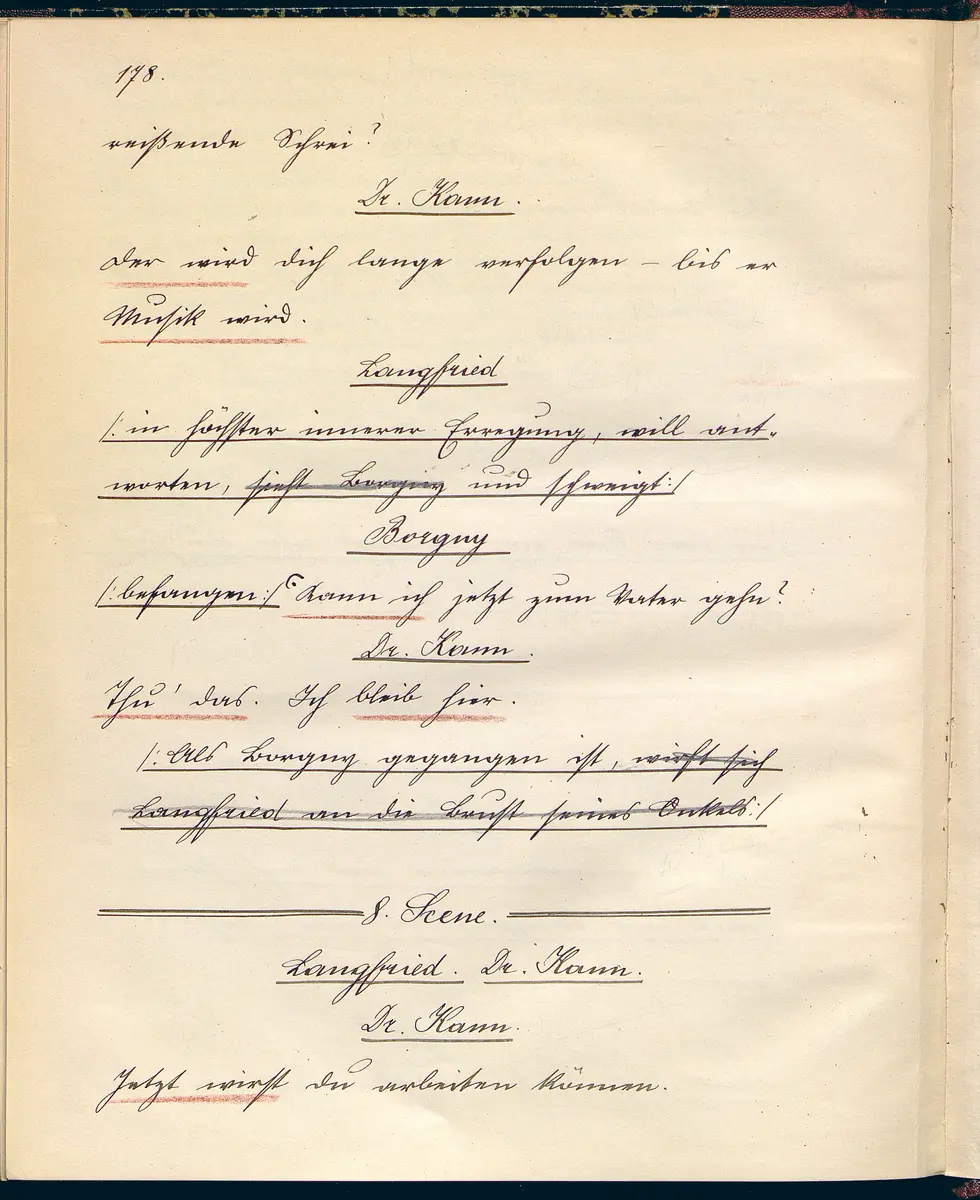 178.
reißende Schrei?
Dr. Kann.
Der wird dich lange verfolgen – bis er
Musik wird.
Langfried
/: in höchster innerer Erregung, will ant-
worten, sieht Borgny und schweigt :/
Borgny
/: befangen :/ Kann ich jetzt zum Vater gehn?
Dr. Kann.
Thu' das. Ich bleib hier.
/: Als Borgny gegangen ist, wirft sich
Langfried an die Brust seines Onkels :/
8. Scene.
Langfried. Dr. Kann.
Dr. Kann.
Jetzt wirst du arbeiten können.